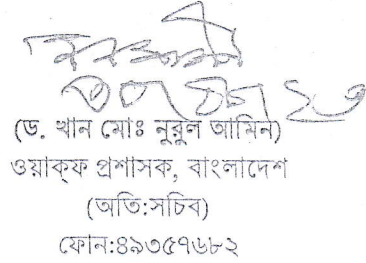 (ড. খান মোঃ নুরুল আমিন)
ওয়াক্ফ প্রশাসক, বাংলাদেশ
(অতি:সচিব)
ফোন:৪৯৩৫৭৬৮২